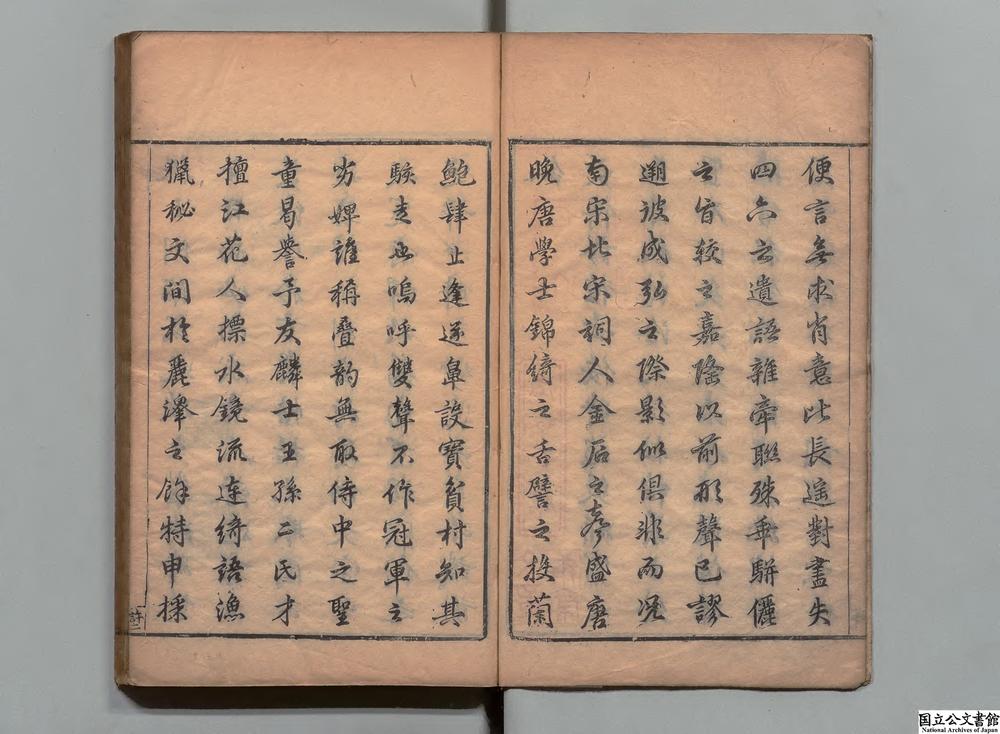 便言無求肖意比長遥對盡失
四六之遺語雜牽聯殊乖駢儷
之旨較之嘉隆以前形聲已謬
遡彼成弘之際影似俱非而况
南宋北宋詞人金石之奏盛唐
晚唐學士錦綺之舌譬之投蘭
鮑肆止逢逐鼻設寶貧村知其
駭走也嗚呼雙聲不作冠軍之
劣婢誰稱疊韵無取侍中之聖
童曷譽予友麟士王孫二氏才
擅江花人標水鏡流連綺語漁
獵秘文間於麗澤之餘特申採
国立公文書館
National Archives of Japan